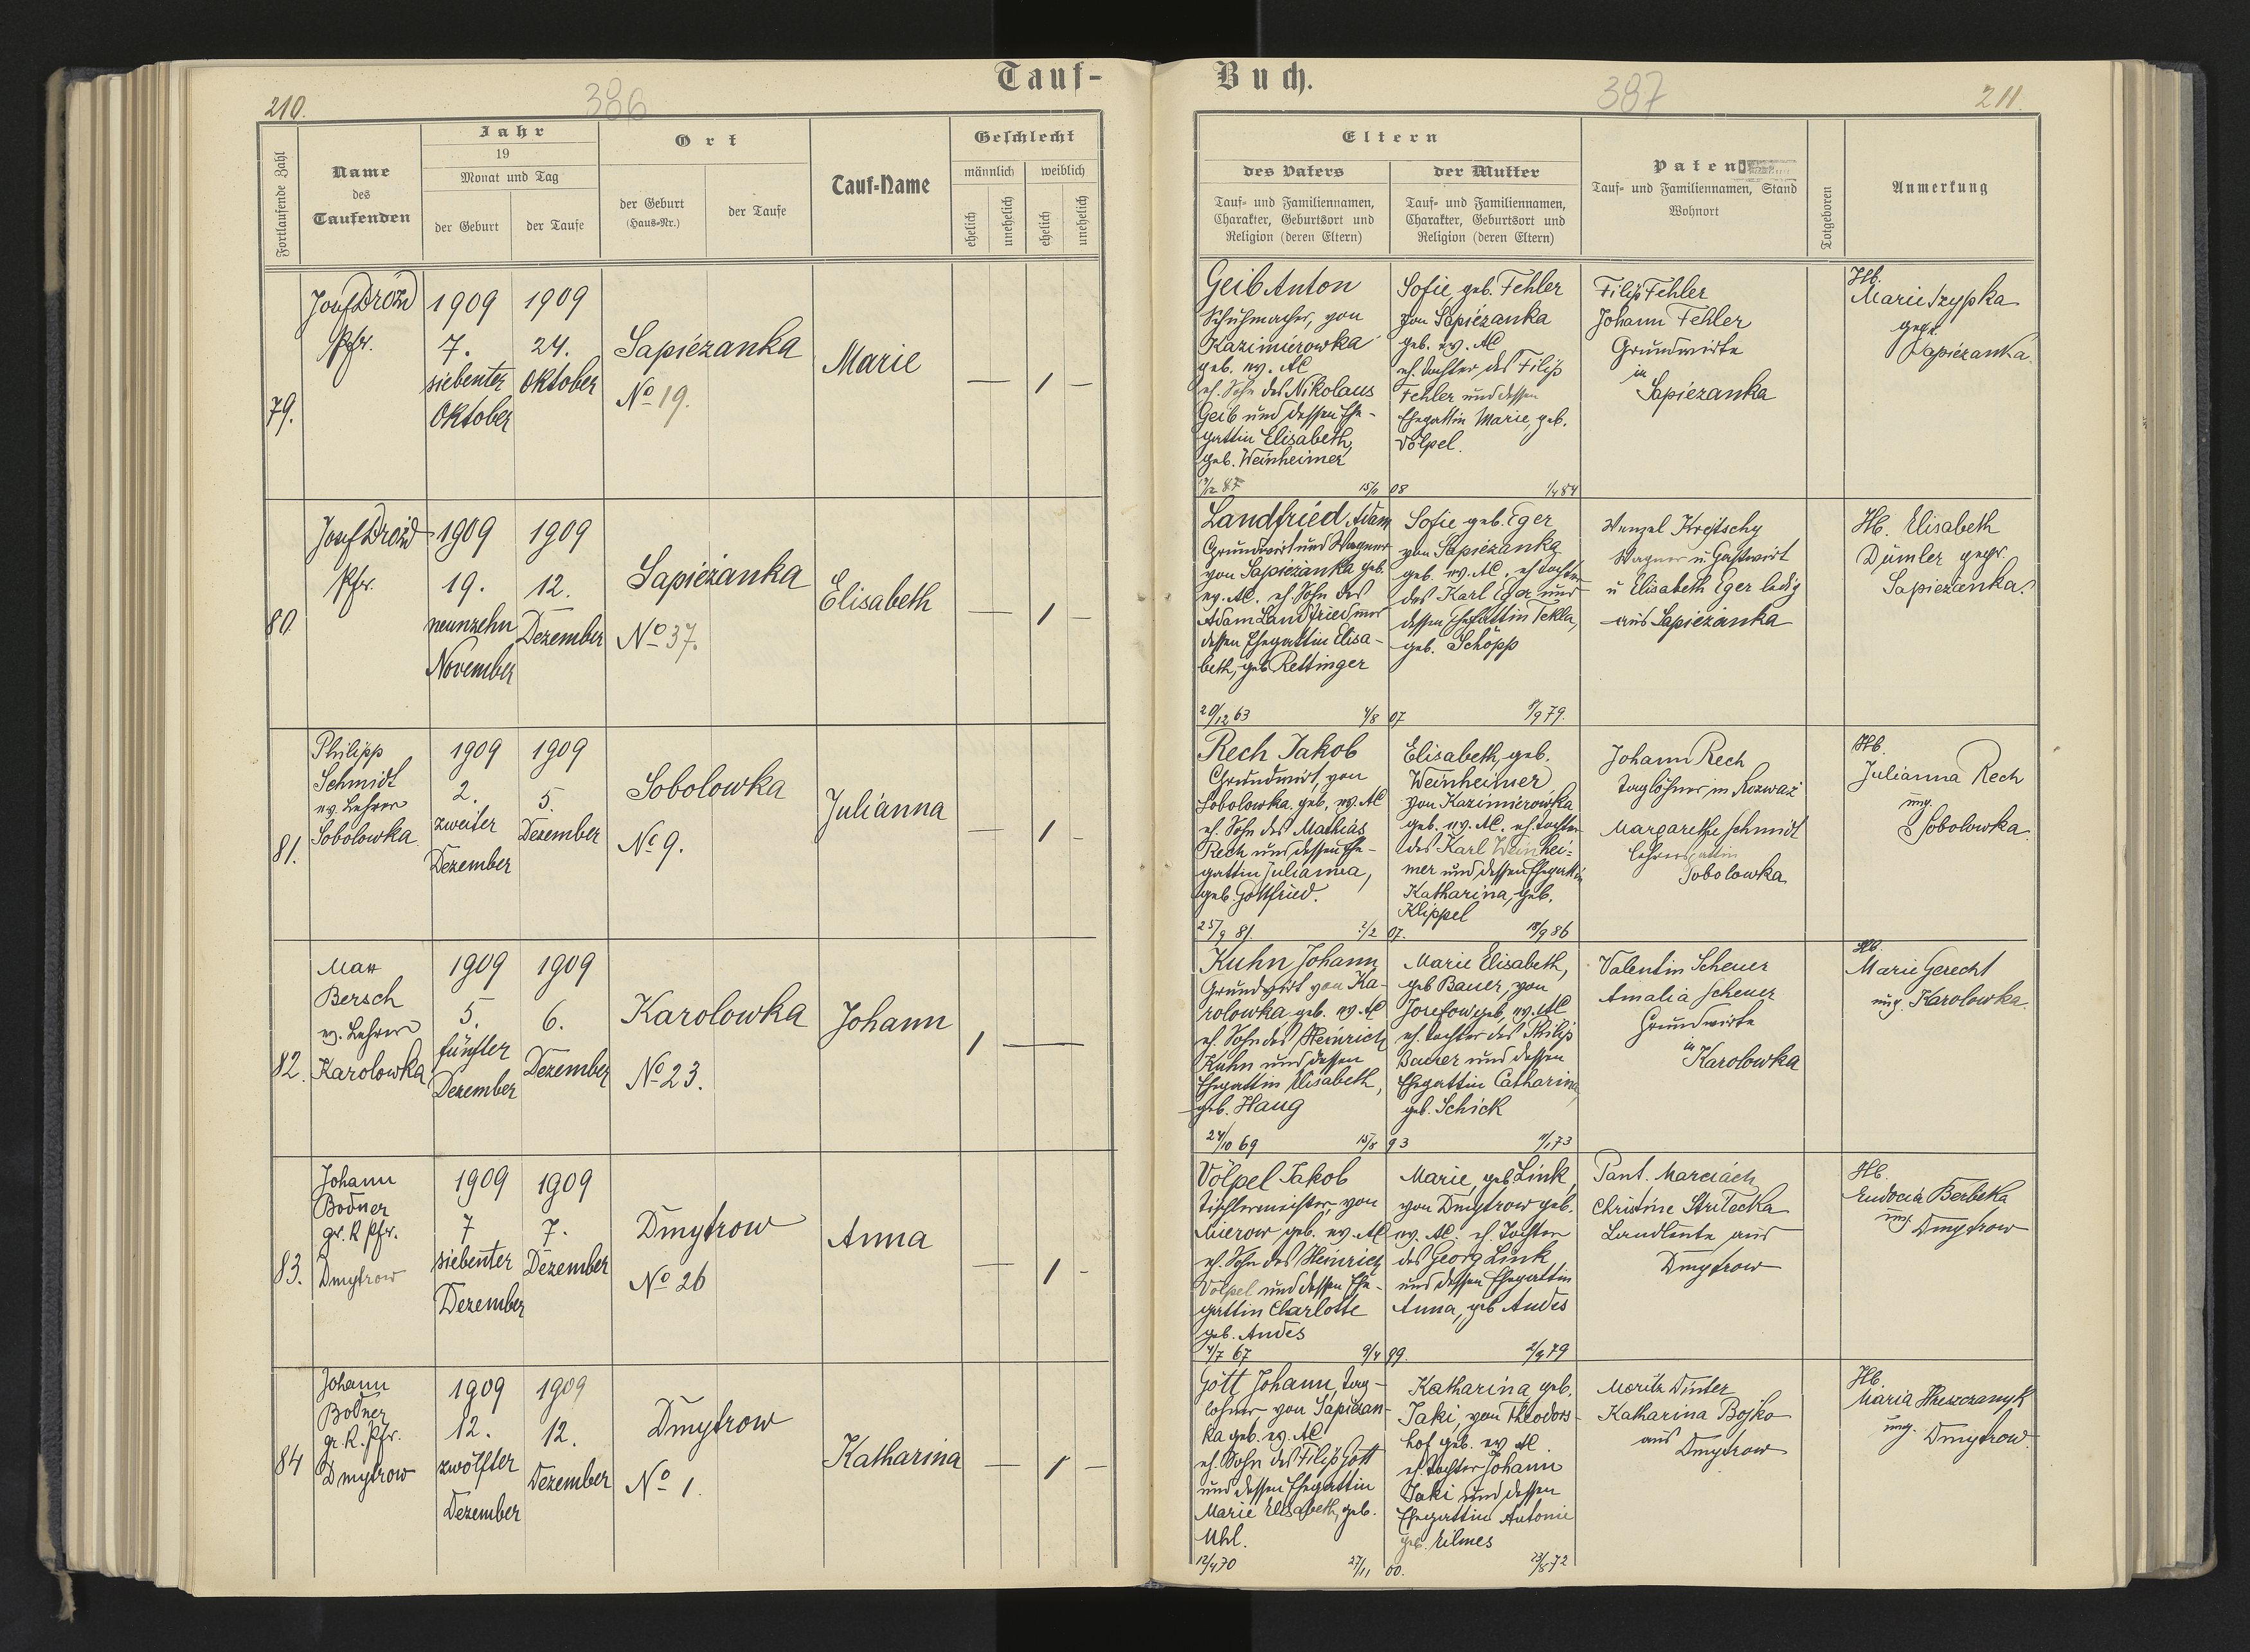 Tauf-
210.
386
Fortlaufende Zahl
Name
des
Taufenden
Jahr
19
Monat und Tag
der Geburt
der Taufe
Ort
der Geburt
(Haus-Nr.)
der Taufe
Tauf-Name
Geschlecht
männlich
weiblich
ehelich
unehelich
ehelich
unehelich
79.
Josef Drozd
Pfr.
1909
7.
siebenter
Oktober
1909
24.
Oktober
Sapiézanka
No 19.
Marie
— 1 —
80
Josef Drozd
Pfr.
1909
19.
neunzehn
November
1909
12.
Dezember
Sapiéżanka
No 37.
Elisabeth
— 1 —
81.
Philipp
Schmidt
ev. Lehrer
Sobolowka
1909
2.
zweiter
Dezember
1909
5.
Dezember
Sobolowka
No 9.
Julianna
— 1 —
82.
Max
Bersch
ev. Lehrer
Karolowka
1909
5.
fünfter
Dezember
1909
6.
Dezember
Karolowka
No 23.
Johann
1 —
83.
Johann
Bodner
gr. K. Pfr.
Dmytrow
1909
7
siebenter
Dezember
1909
7.
Dezember
Dmytrow
No 26
Anna
— 1 -
84
Johann
Bodner
gr. K. Pfr.
Dmytrow
1909
12.
zwölfter
Dezember
1909
12.
Dezember
Dmytrow
No 1.
Katharina
— 1 —
Buch.
387
211.
Eltern
des Vaters
der Mutter
Tauf- und Familiennamen,
Charakter, Geburtsort und
Religion (deren Eltern)
Tauf- und Familiennamen,
Charakter, Geburtsort und
Religion (deren Eltern)
Paten
Tauf- und Familiennamen, Stand
Wohnort
Totgeboren
Anmerkung
Geib Anton
Schuhmacher, von
Kazimierowka
geb. ev. AC
eh. Sohn des Nikolaus
Geib und dessen Ehe-
gattin Elisabeth,
geb. Weinheimer
Sofie, geb. Fehler
von Sapiézanka
geb. ev. AC
eh. Tochter des Filip
Fehler und dessen
Ehegattin Marie, geb.
Völpel.
08
1/4 84
Filip Fehler
Johann Fehler
Grundwirte
in
Sapiézanka
Hb.
Marie
gepr.
Sapiézanka.
Landfried Adam
Grundwirt und Wagner
von Sapiézanka geb.
ev. AC. eh. Sohn des
Adam Landfried und
dessen Ehegattin Elisa-
beth, geb Rettinger
20/12 63
4/8 07
Sofie geb. Eger
von Sapiézanka
geb. ev. AC. eh Tochter
des Karl Eger und
dessen Ehegattin Tekla,
geb. Schöpp
8/9 79.
Wenzel Krejtschy
Wagner u Gastwirt
u Elisabeth Eger ledig
aus Sapiézanka
Hb. Elisabeth
Dümler gepr.
Sapiezanka.
Rech Jakob
Grundwirt, von
Sobolowka. geb. ev. AC
eh. Sohn des Mathias
Rech und dessen Ehe-
gattin Julianna,
geb. Gottfried.
25/9 81.
2/2 07.
Elisabeth, geb.
Weinheimer
von Kazimierowka
geb. ev. AC. eh. Tochter
des Karl Weinhei-
mer und dessen Ehegattin
Katharina, geb.
Klippel
18/9 86
Johann Rech
Taglöhner in Rozważ
Margarethe Schmidt
Lehrersgattin
Sobolowka
Hb.
Julianna Rech
ung.
Sobolowka.
Kuhn Johann
Grundwirt von Ka-
rolowka geb. ev. AC
eh. Sohn des Heinrich
Kuhn und dessen
Ehegattin Elisabeth,
geb. Haug
24/10 69
15/8 93
Marie Elisabeth,
geb Bauer, von
Josefow geb. ev. AC
eh. Tochter des Philip
Bauer und dessen
Ehegattin Catharina,
geb. Schick
Valentin Scheuer
Amalia Scheuer
Grundwirte
in
Karolowka
Hb.
Marie Gerecht
ung. Karolowka.
Völpel Jakob
Tischlermeister von
geb. ev. AC
eh. Sohn des Heinrich
Völpel und dessen Ehe-
gattin Charlotte
geb. Andes
4/7 67
9/4 99.
Marie, geb Link,
von Dmytrow geb.
ev. AC. eh. Tochter
des Georg Link
und dessen Ehegattin
Anna, geb Andes
2/9 79
Pant.
Christine
Landleute aus
Dmytrow
Hb.
Eudocia Berbeka
ung. Dmytrow
Gött Johann, Tag-
löhner von Sapiézan-
ka geb. ev. AC
eh. Sohn des Filip Gött
und dessen Ehegattin
Marie Elisabeth, geb.
Uhl.
12/4 70
27/11 00.
Katharina geb.
Jaki, von Theodors-
hof geb. ev AC.
eh. Tochter Johann
Jaki und dessen
Ehegattin Antonie
geb. Eilmes
23/8 72
Moritz Winter
Katharina Bojko
aus Dmytrow
Hb.
Maria Hreszczanyk
ung. Dmytrow.